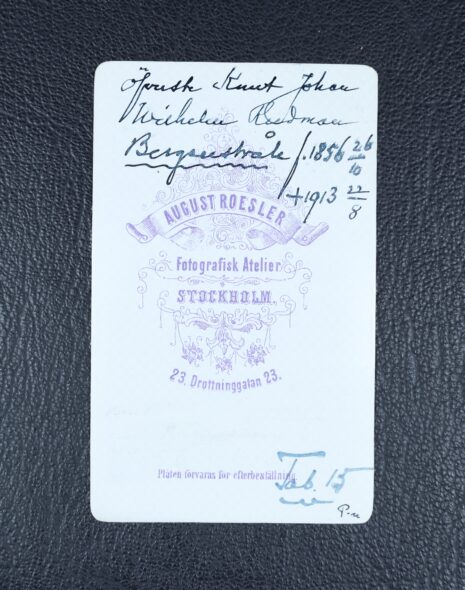 Öfvste Knut Johan
Wilhelm
Bergenstråle f. 1856 26/10
+ 1913 22/8
AUGUST ROESLER
Fotografisk Atelier
STOCKHOLM.
23. Drottninggatan 23.
Plåten förvaras för efterbeställning
Tab. 15